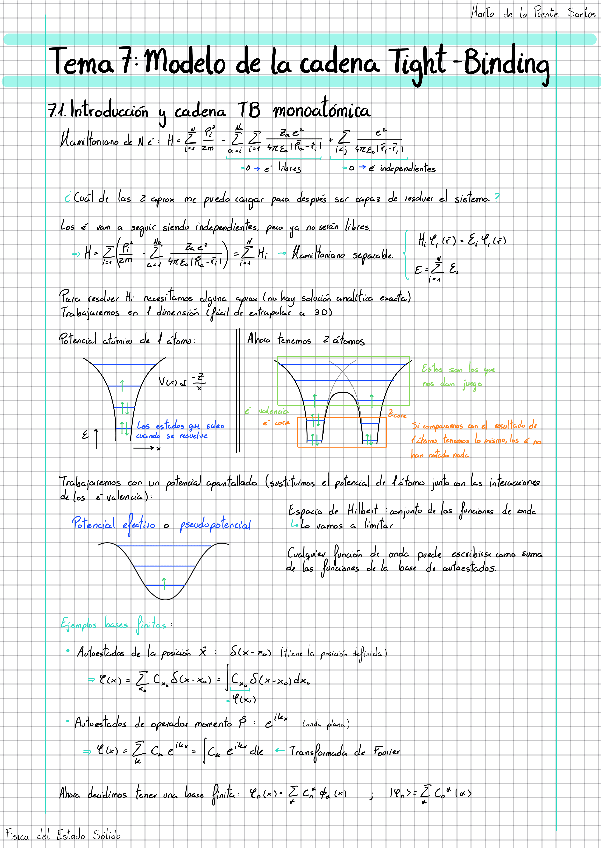 Marta de la Puente Santos
Tema 7: Modelo de la cadena Tight-Binding
7.1. Introducción y cadena TB monoatómica
Hamiltoniano de N e⁻: H = Σ_{i=1}^{N} P_i²/2m - Σ_{a=1}^{Na} Σ_{i=1} Z_a e²/4πε₀|R_a - r_i| + Σ_{i<j} e²/4πε₀|r_i - r_j|
=0 → e⁻ libres =0 → e⁻ independientes
¿Cuál de las 2 aprox me puedo cargar para después ser capaz de resolver el sistema?
Los e⁻ van a seguir siendo independientes, pero ya no serán libres.
⇒ H = Σ_{i=1} (P_i²/2m - Σ_{a=1}^{Na} Z_a e²/4πε₀|R_a - r_i|) = Σ_{i=1}^{N} H_i → Hamiltoniano separable
H_i φ_i(r) = E_i φ_i(r)
E = Σ_{i=1}^{N} E_i
Para resolver H_i necesitamos alguna aprox (no hay solución analítica exacta)
Trabajaremos en 1 dimensión (fácil de extrapolar a 3D)
Potencial atómico de 1 átomo:
V(x) α -Z/x
Los estados que salen
cuando se resuelve
E
x
Ahora tenemos 2 átomos
Estos son los que
nos dan juego
e⁻ valencia
e⁻ core
Z core
Si comparamos con el resultado de
1 átomo tenemos lo mismo, los e⁻ no
han notado nada
Trabajaremos con un potencial apantallado (sustituimos el potencial de 1 átomo junto con las interacciones
de los e⁻ valencia):
Potencial efectivo o pseudopotencial
Espacio de Hilbert: conjunto de las funciones de onda
↳ Lo vamos a limitar
Cualquier función de onda puede escribirse como suma
de las funciones de la base de autoestados.
Ejemplos bases finitas:
• Autoestados de la posición X̂: δ(x-x₀) (tiene la posición definida)
⇒ φ(x) = Σ_{x₀} C_{x₀} δ(x-x₀) = ∫ C_{x₀} δ(x-x₀) dx₀
= φ(x₀)
• Autoestados de operador momento P̂: e^{ikx} (onda plana)
⇒ φ(x) = Σ_k C_k e^{ikx} = ∫ C_k e^{ikx} dk ← Transformada de Fourier
Ahora decidimos tener una base finita: φ_n(x) = Σ_α C_n^α ϕ_α(x) ; |φ_n> = Σ_α C_n^α |α>
Física del Estado Sólido